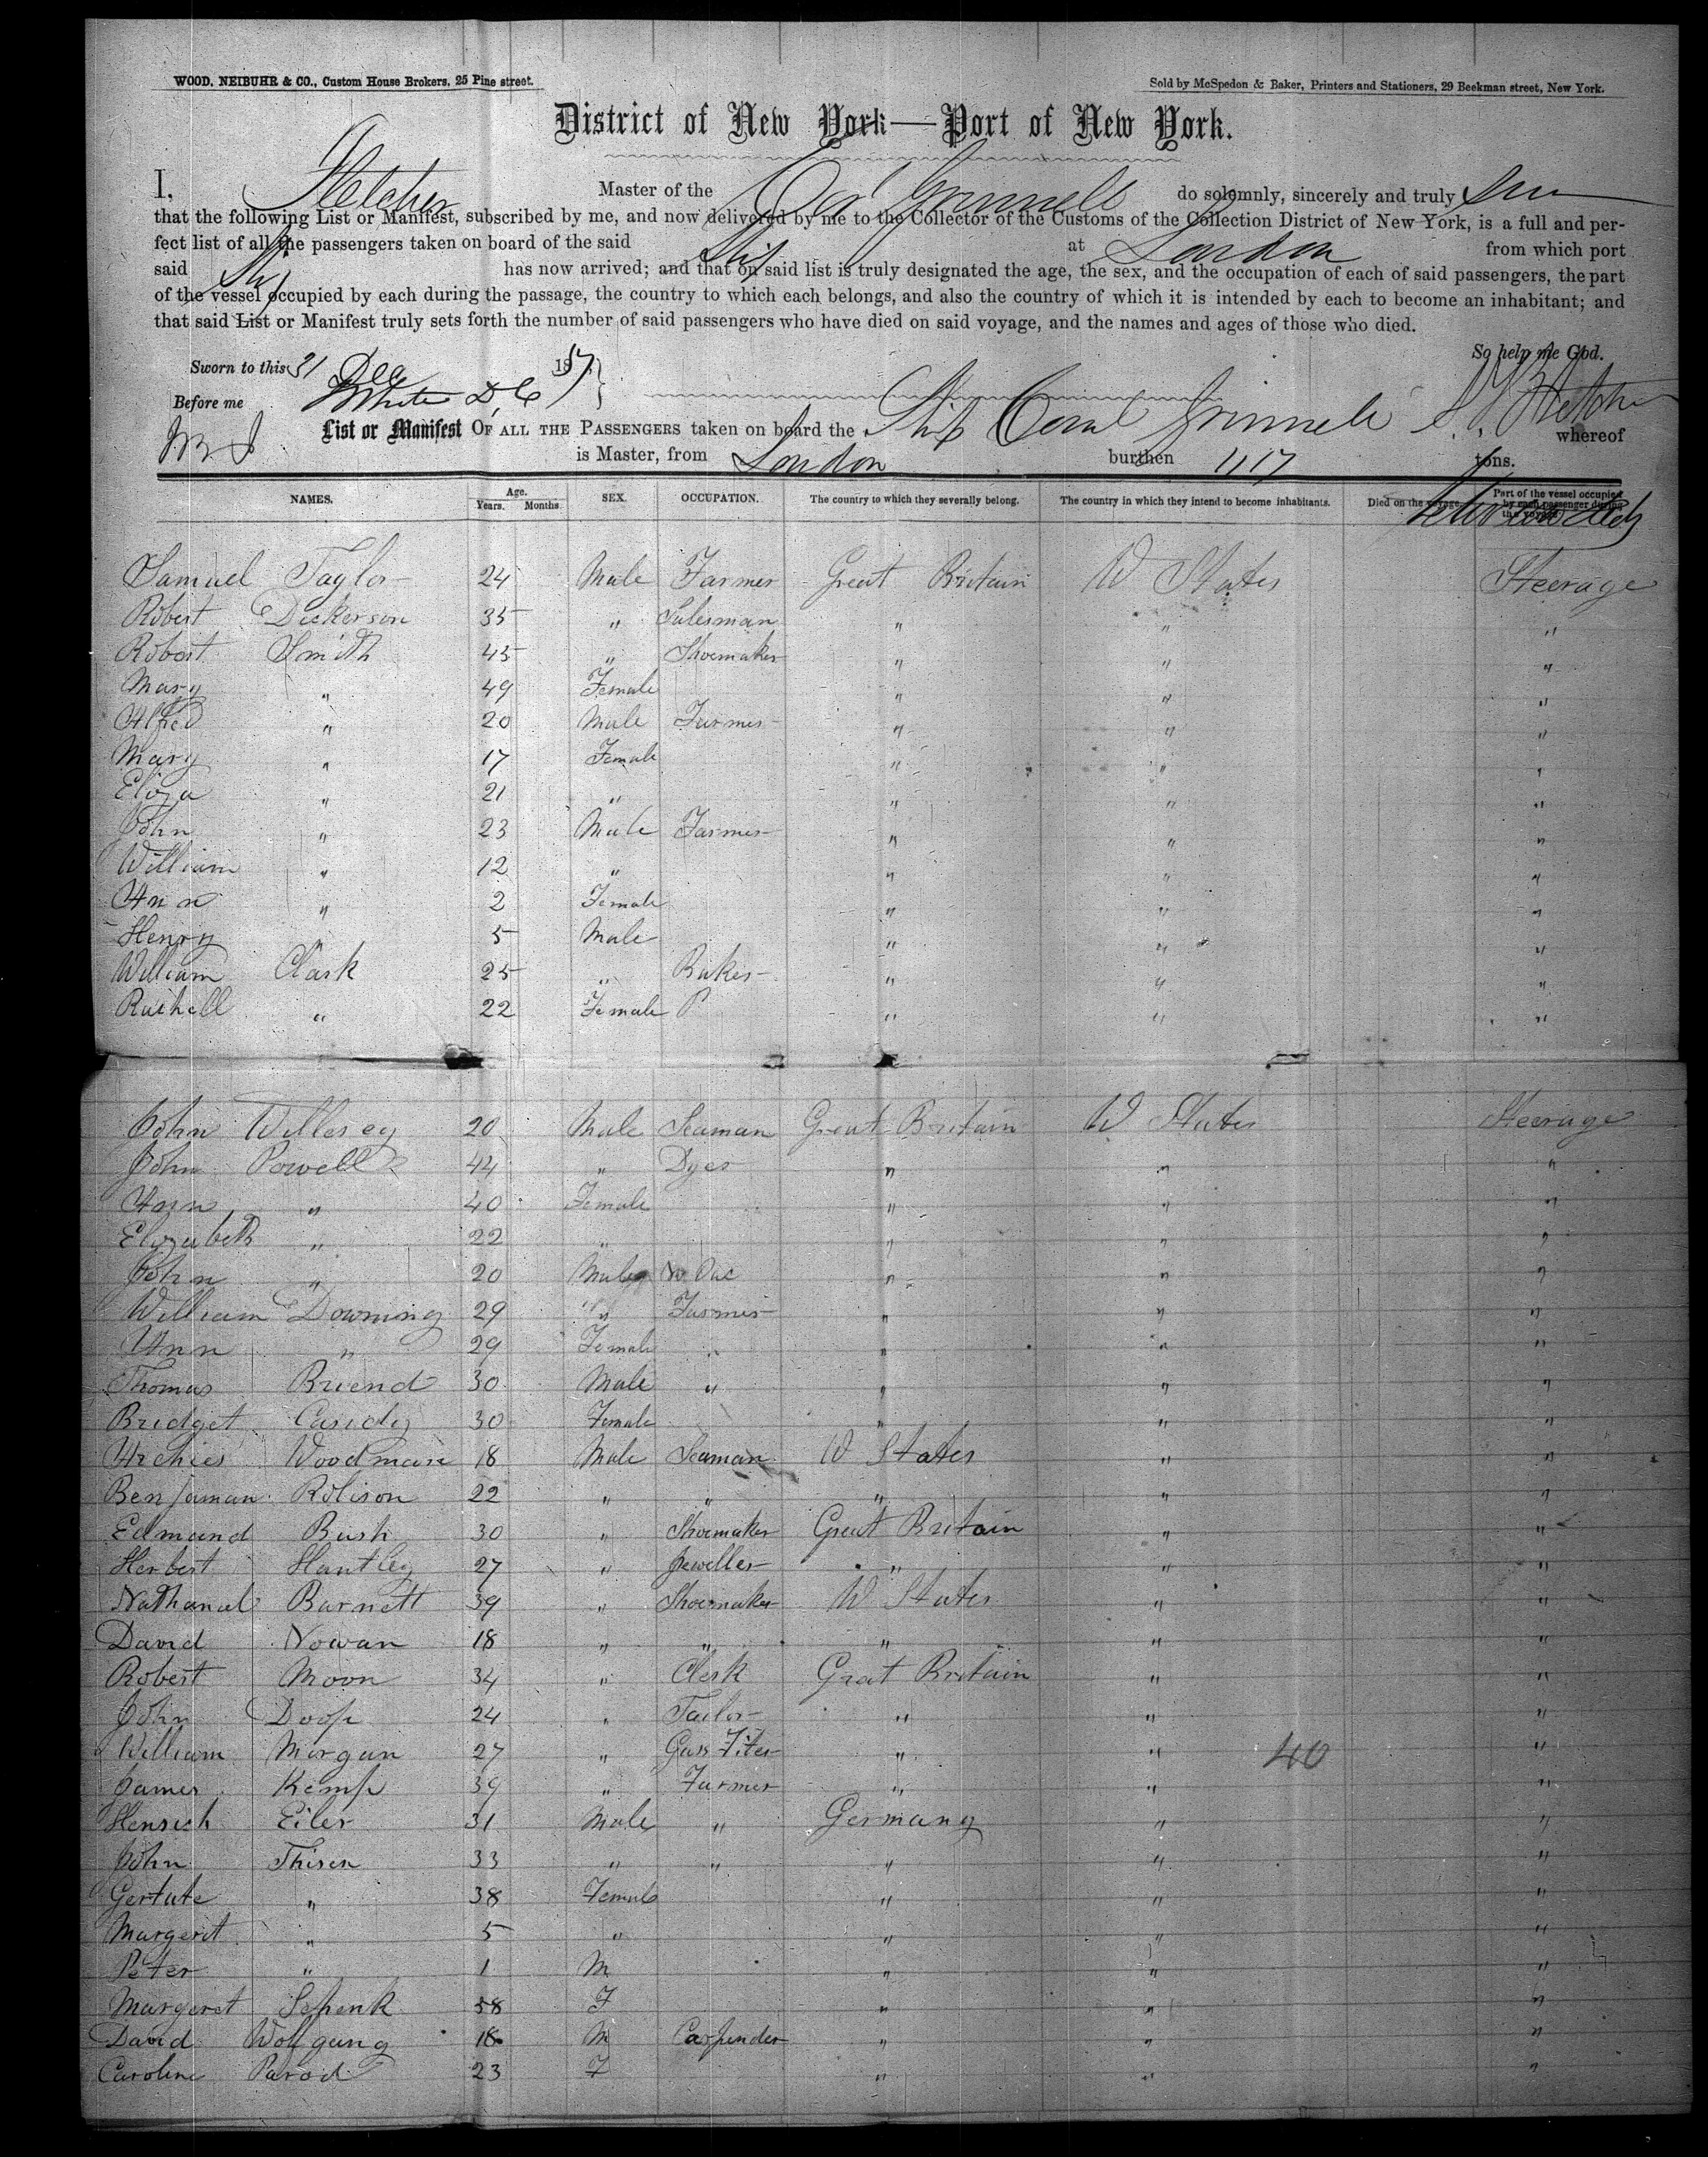 WOOD, NEIBUHR & CO., Custom House Brokers, 25 Pine street.
Sold by McSpedon & Baker, Printers and Stationers, 29 Beekman street, New York.
District of New York—Port of New York.
I, Fletcher Master of the Corl Grinnell do solemnly, sincerely and truly
that the following List or Manifest, subscribed by me, and now delivered by me to the Collector of the Customs of the Collection District of New York, is a full and per-
fect list of all the passengers taken on board of the said Ship at London from which port
said Ship has now arrived; and that on said list is truly designated the age, the sex, and the occupation of each of said passengers, the part
of the vessel occupied by each during the passage, the country to which each belongs, and also the country of which it is intended by each to become an inhabitant; and
that said List or Manifest truly sets forth the number of said passengers who have died on said voyage, and the names and ages of those who died.
So help me God.
Sworn to this 31 Dec 1857
Before me
List or Manifest OF ALL THE PASSENGERS taken on board the Ship Cornl Grinnell Fletcher whereof
is Master, from London burthen 1117 tons.
NAMES. Age. Years. Months SEX. OCCUPATION. The country to which they severally belong. The country in which they intend to become inhabitants. Died on the voyage. Part of the vessel occupied by each passenger during the voyage.
Samuel Taylor 24 Male Farmer Great Britain U States Steerage
Robert Dickerson 35 " Salesman " " "
Robert Smith 45 " Shoemaker " " "
Mary " 49 Female " " "
Alfred " 20 Male Farmer " " "
Mary " 17 Female " " "
Eliza " 21 " " " "
John " 23 Male Farmer " " "
William " 12 " " " "
Ann " 2 Female " " "
Henry 5 Male " " "
William Clark 25 " Baker " " "
Rachell " 22 Female " " "
John Willesey 20 Male Seaman Great Britain U States Steerage
John Powell 44 " Dyer " " "
Ann " 40 Female " " "
Elizabeth " 22 " " " "
John " 20 Male " " "
William Downing 29 " Farmer " " "
Ann " 29 Female " " " "
Thomas Briend 30 Male " " " "
Bridget Casidy 30 Female " " "
Archies Woodman 18 Male Seaman U States " "
Benjaman Robison 22 " " " " "
Edmand Bush 30 " Shoemaker Great Britain " "
Herbert Hantley 27 " Jeweller " " "
Nathanal Barnett 39 " Shoemaker U States " "
David Nowan 18 " " " " "
Robert Moon 34 " Clerk Great Britain " "
John Doop 24 " Tailor " " "
William Morgan 27 " Gass Fiter " " 40 "
James Kemp 39 " Farmer " " "
Henrich Eiler 31 Male " Germany " "
John Thisen 33 " " " " "
Gertute " 38 Female " " "
Margerit " 5 " " " "
Peter " 1 M " " "
Margeret Schenk 58 F " " "
David Wolfgang 18 M Carpender " " "
Caroline Parod 23 F " " "